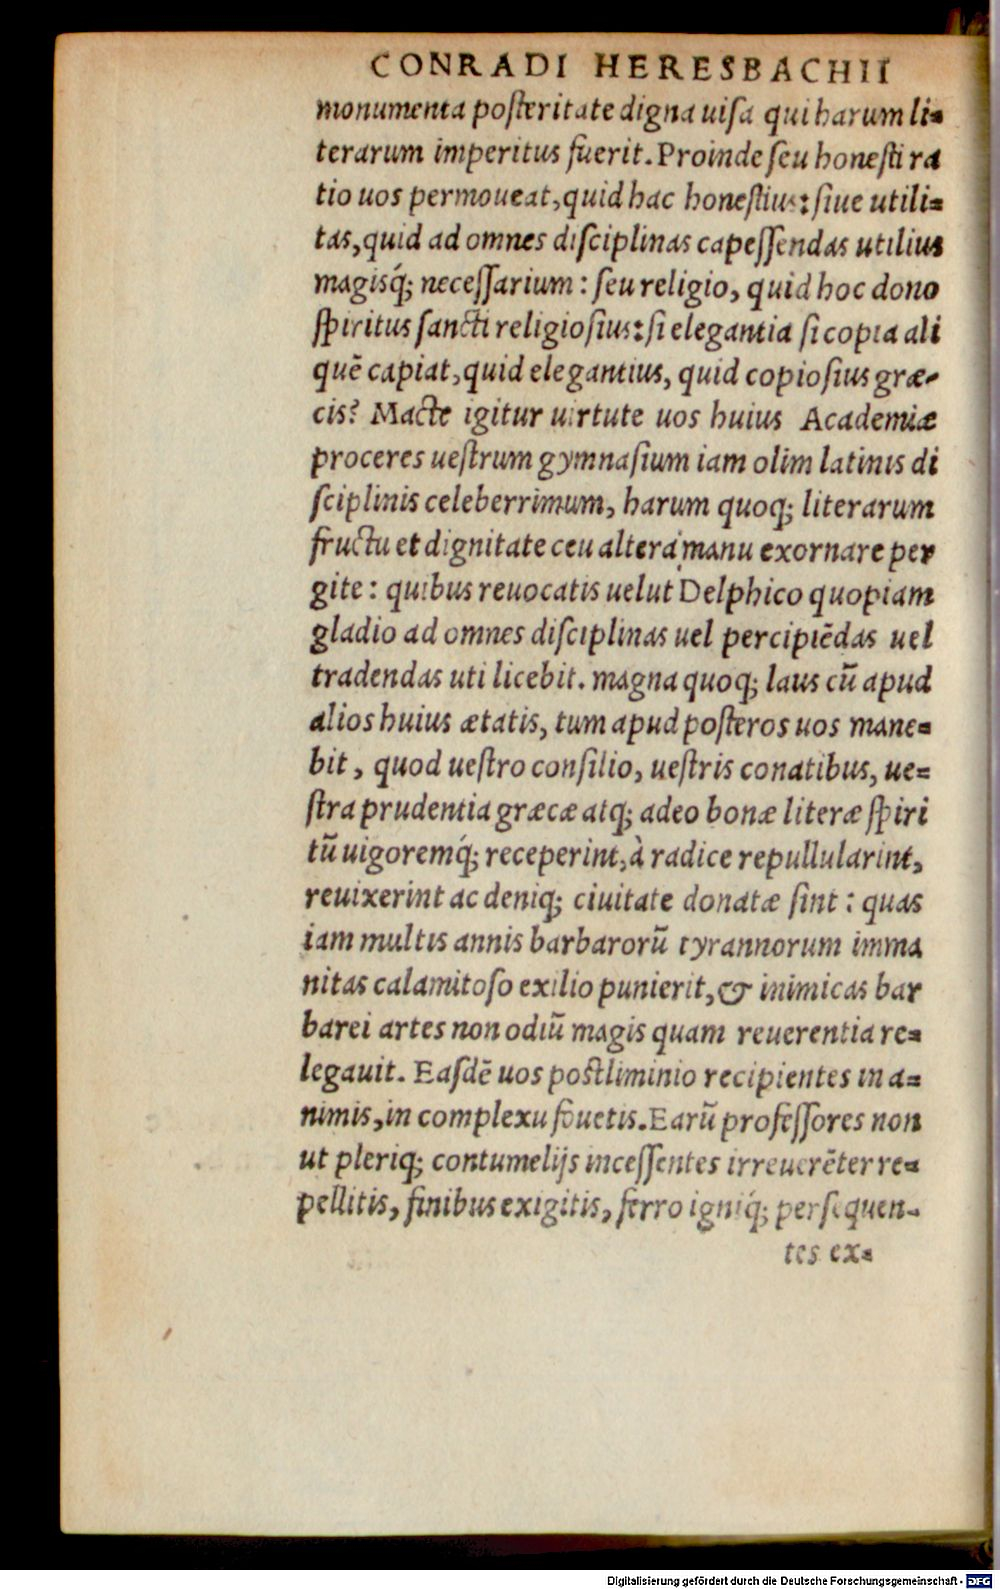 CONRADI HERESBACHII
monumenta posteritate digna uisa qui harum li-
terarum imperitus fuerit. Proinde seu honesti ra
tio uos permoueat, quid hac honestius: siue utili-
tas, quid ad omnes disciplinas capessendas utilius
magisq́; necessarium: seu religio, quid hoc dono
spiritus sancti religiosius: si elegantia si copia ali
quē capiat, quid elegantius, quid copiosius græ-
cis? Macte igitur uirtute uos huius Academiæ
proceres uestrum gymnasium iam olim latinis di
sciplinis celeberrimum, harum quoq; literarum
fructu et dignitate ceu altera manu exornare per
gite: quibus reuocatis uelut Delphico quopiam
gladio ad omnes disciplinas uel percipiēdas uel
tradendas uti licebit. magna quoq; laus cū apud
alios huius ætatis, tum apud posteros uos mane-
bit, quod uestro consilio, uestris conatibus, ue-
stra prudentia græcæ atq; adeo bonæ literæ spiri
tū uigoremq́; receperint, à radice repullularint,
reuixerint ac deniq; ciuitate donatæ sint: quas
iam multis annis barbarorū tyrannorum imma
nitas calamitoso exilio punierit, & inimicas bar
barei artes non odiū magis quam reuerentia re-
legauit. Easdē uos postliminio recipientes in a-
nimis, in complexu fouetis. Earū professores non
ut pleriq; contumelijs incessentes irreuerēter re-
pellitis, finibus exigitis, ferro igniq́; persequen-
tes ex-
Digitalisierung gefördert durch die Deutsche Forschungsgemeinschaft - DFG